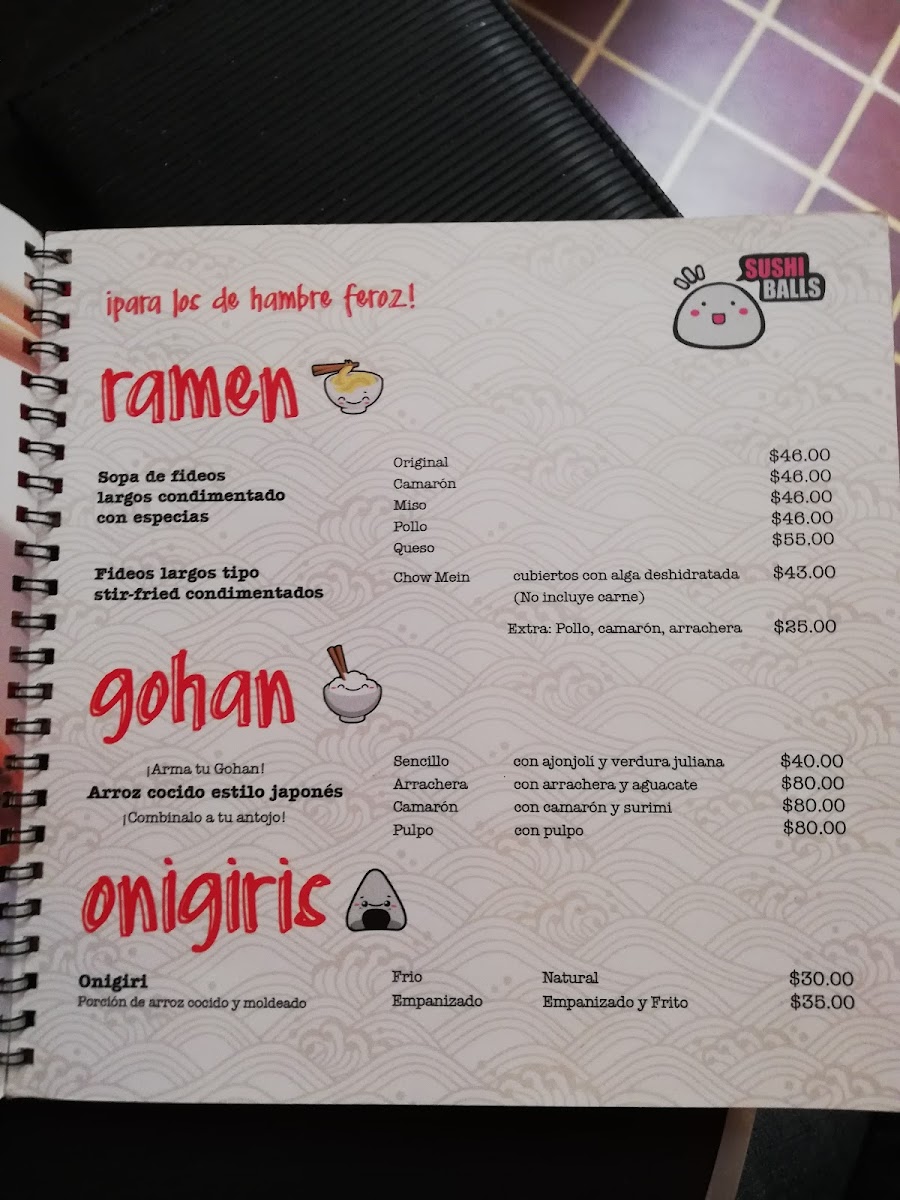 ¡para los de hambre feroz!
SUSHI
BALLS
ramen
Sopa de fideos
largos condimentado
con especias
Original $46.00
Camarón $46.00
Miso $46.00
Pollo $46.00
Queso $55.00
Fideos largos tipo
stir-fried condimentados
Chow Mein cubiertos con alga deshidratada $43.00
(No incluye carne)
Extra: Pollo, camarón, arrachera $25.00
gohan
¡Arma tu Gohan!
Arroz cocido estilo japonés
¡Combínalo a tu antojo!
Sencillo con ajonjolí y verdura juliana $40.00
Arrachera con arrachera y aguacate $80.00
Camarón con camarón y surimi $80.00
Pulpo con pulpo $80.00
onigiris
Onigiri
Porción de arroz cocido y moldeado
Frio Natural $30.00
Empanizado Empanizado y Frito $35.00